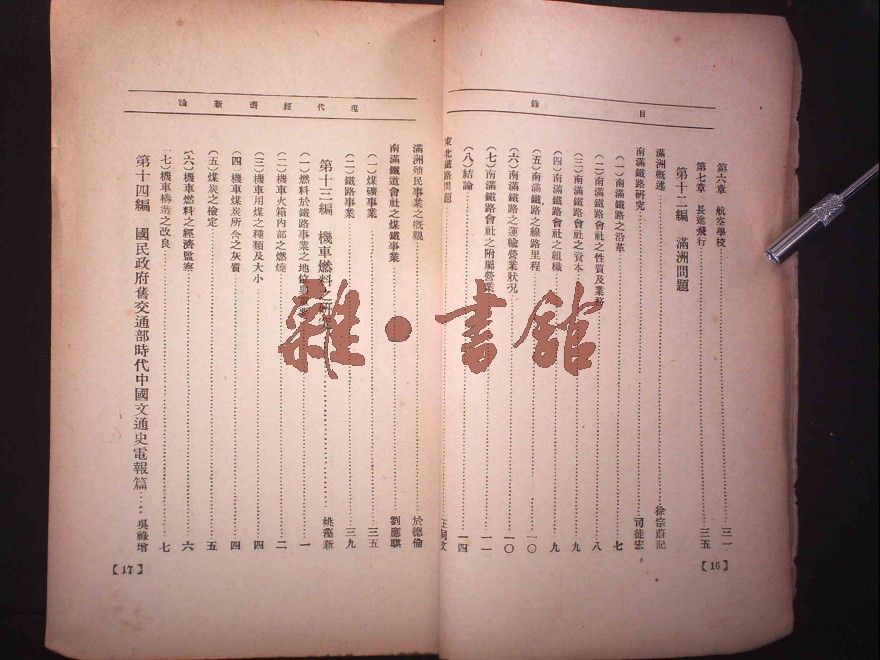 目錄
第六章 航空學校 三一
第七章 長途飛行 三五
第十二編 滿洲問題
滿洲概述 徐宗蔚記
南滿鐵路研究 司徒宏
(一)南滿鐵路之沿革 七
(二)南滿鐵路會社之性質及業務 八
(三)南滿鐵路會社之資本 九
(四)南滿鐵路會社之組織 九
(五)南滿鐵路之線路里程 一〇
(六)南滿鐵路之運輸營業狀况 一〇
(七)南滿鐵路會社之附屬營業 一一
(八)結論 一四
東北鐵路問題
【16】
現代經濟新論
滿洲殖民事業之概觀 於德倫
南滿鐵道會社之煤鐵事業 劉應騏
(一)煤礦事業 三五
(二)鐵路事業 三九
第十三編 機車燃料之研究 姚藻新
(一)燃料於鐵路事業之地位 一
(二)機車火箱內部之燃燒 二
(三)機車用煤之種類及大小 四
(四)機車煤炭所含之灰質 四
(五)煤炭之檢定 五
(六)機車燃料之經濟監察 六
(七)機車構造之改良 七
第十四編 國民政府舊交通部時代中國交通史電報篇 吳祿增
【17】
雜·書館